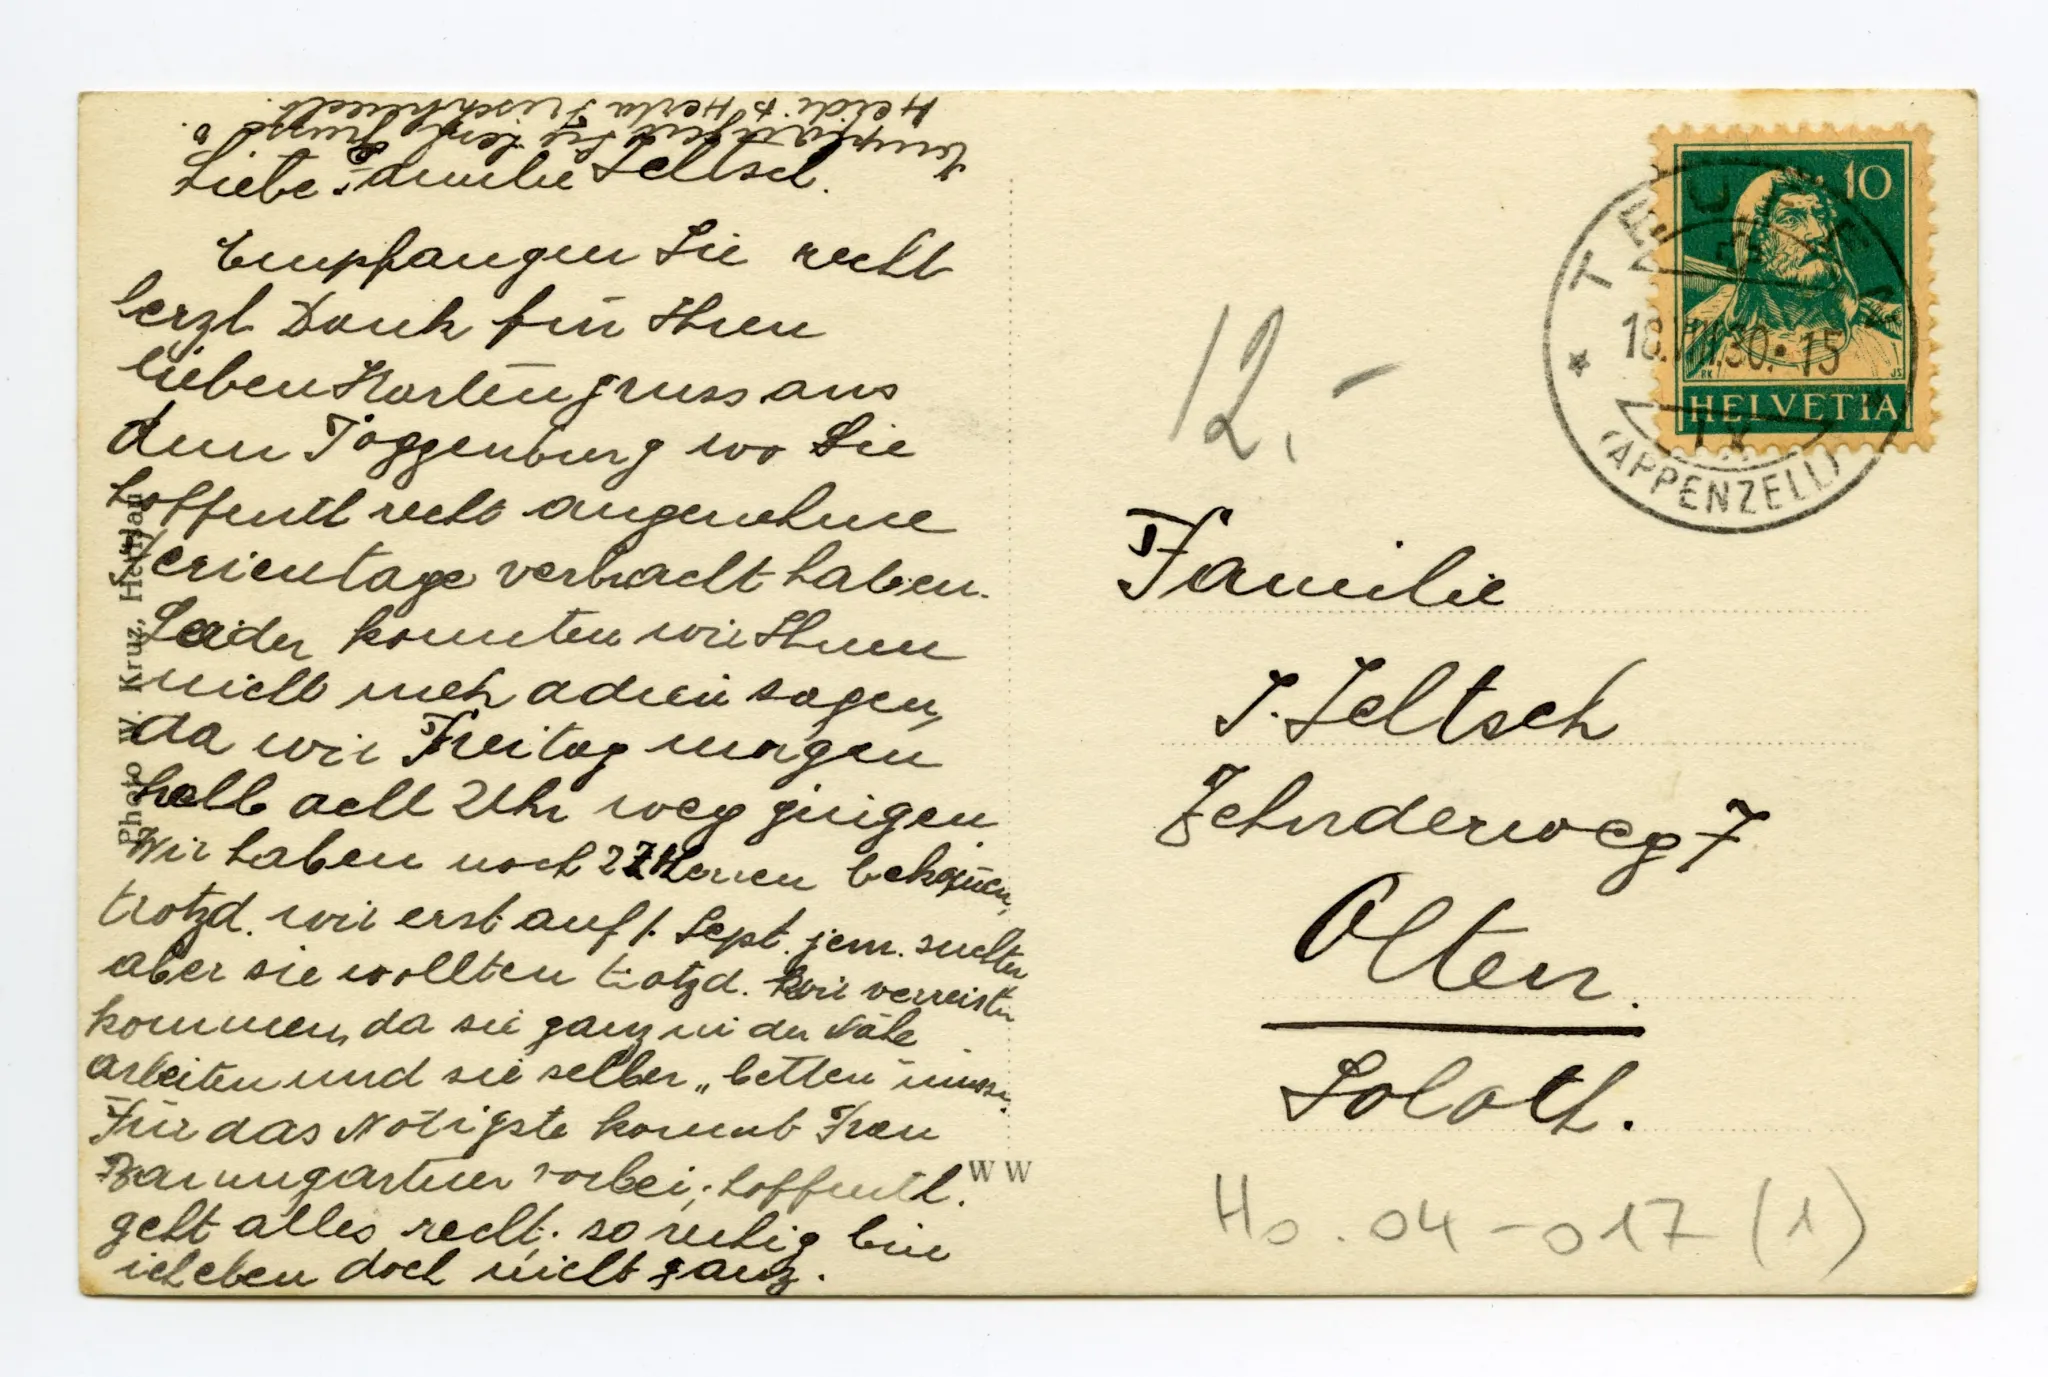 Liebe Familie Jeltsch.
Empfangen Sie recht
herzl. Dank für Ihren
lieben Kartengruss aus
dem Toggenburg wo Sie
hoffentl. recht angenehme
Ferientage verbracht haben.
Leider konnten wir Ihnen
nicht meh adieu sagen,
da wir Freitag morgen
halb acht Uhr weg gingen.
Wir haben noch 2 Herren bekommen,
trotzd. wir erst auf 1. Sept. jem. suchten
aber sie wollten trotzd. wir verreisten
kommen, da sie ganz in der Nähe
arbeiten und sie selber „betten" müssen.
Für das Nötigste kommt Frau
Baumgartner vorbei; hoffentl.
geht alles recht; so ruhig bin
ich eben doch nicht ganz.
Empfangen Sie herzl. Grüsse
Heidi & Herta
Photo W. Kruz, Herisau
WW
12.-
TEUFEN
18.VIII.30.-15
(APPENZELL)
10
HELVETIA
Familie
J. Jeltsch
Zehnderweg 7
Olten.
Soloth.
Ho.04-017 (1)